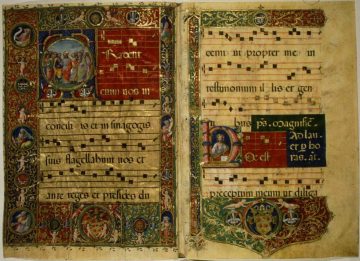 Tradent
enim uos in
concilis et in sinagogis
suis flagellabunt uos et
ante reges et presides du
cemini propter me in
testimonium illis et gen
tibus ps. Magnificat
Hoc est
preceptum meum ut diliga